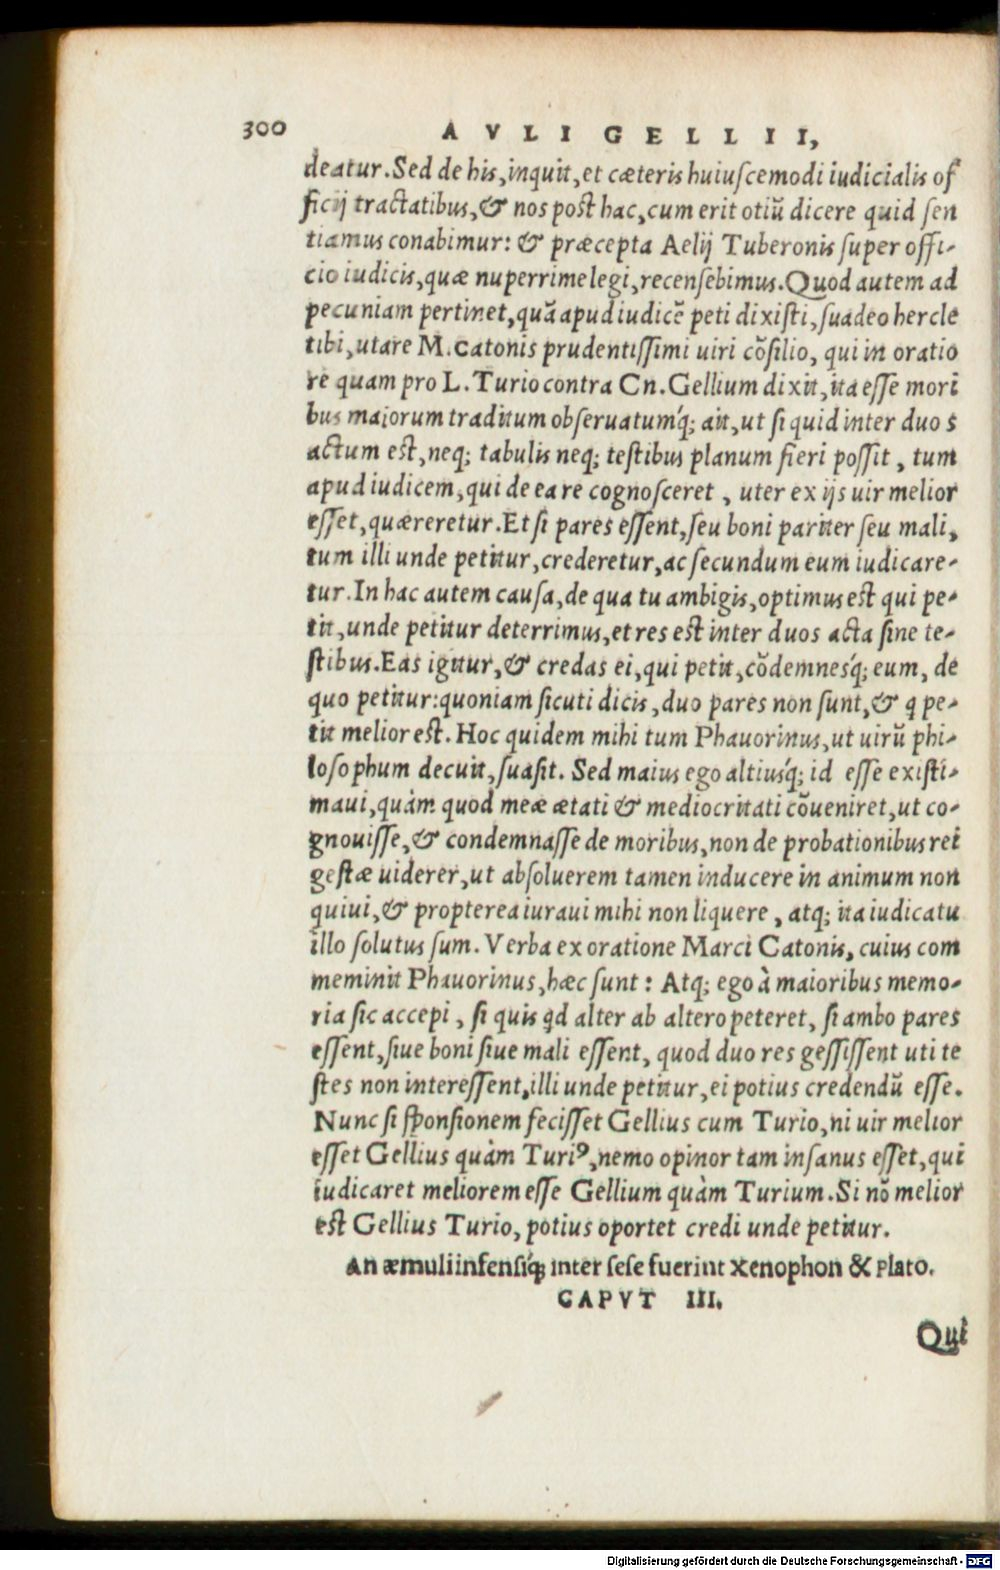 300 AVLI GELLII,
deatur. Sed de his, inquit, et cæteris huiuſcemodi iudicialis of
ficij tractatibus, & nos post hac, cum erit otiũ dicere quid ſen
tiamus conabimur: & præcepta Aelij Tuberonis ſuper offi-
cio iudicis, quæ nuperrime legi, recenſebimus. Quod autem ad
pecuniam pertinet, quã apud iudicẽ peti dixisti, ſuadeo hercle
tibi, utare M. Catonis prudentiſſimi uiri cõſilio, qui in oratio
re quam pro L. Turio contra Cn. Gellium dixit, ita eſſe mori
bus maiorum traditum obſeruatumq́; ait, ut ſi quid inter duo s
actum est, neq; tabulis neq; testibus planum fieri poſſit, tum
apud iudicem, qui de ea re cognoſceret, uter ex ijs uir melior
eſſet, quæreretur. Et ſi pares eſſent, ſeu boni pariter ſeu mali,
tum illi unde petitur, crederetur, ac ſecundum eum iudicare-
tur. In hac autem cauſa, de qua tu ambigis, optimus est qui pe-
tit, unde petitur deterrimus, et res est inter duos acta ſine te-
stibus. Eas igitur, & credas ei, qui petit, cõdemnesq́; eum, de
quo petitur: quoniam ſicuti dicis, duo pares non ſunt, & q pe-
tit melior est. Hoc quidem mihi tum Phauorinus, ut uirũ phi-
loſophum decuit, ſuaſit. Sed maius ego altiusq́; id eſſe existi-
maui, quàm quod meæ ætati & mediocritati cõueniret, ut co-
gnouiſſe, & condemnaſſe de moribus, non de probationibus rei
gestæ uiderer, ut abſoluerem tamen inducere in animum non
quiui, & propterea iuraui mihi non liquere, atq; ita iudicatu
illo ſolutus ſum. Verba ex oratione Marci Catonis, cuius com
meminit Phauorinus, hæc ſunt: Atq; ego à maioribus memo-
ria ſic accepi, ſi quis qd alter ab altero peteret, ſi ambo pares
eſſent, ſiue boni ſiue mali eſſent, quod duo res geſſiſſent uti te
stes non intereſſent, illi unde petitur, ei potius credendũ eſſe.
Nunc ſi ſponſionem feciſſet Gellius cum Turio, ni uir melior
eſſet Gellius quàm Turiꝰ, nemo opinor tam inſanus eſſet, qui
iudicaret meliorem eſſe Gellium quàm Turium. Si nõ melior
est Gellius Turio, potius oportet credi unde petitur.
An æmuli infenſiq́; inter ſeſe fuerint Xenophon & Plato.
CAPVT III.
Qui
Digitalisierung gefördert durch die Deutsche Forschungsgemeinschaft - DFG